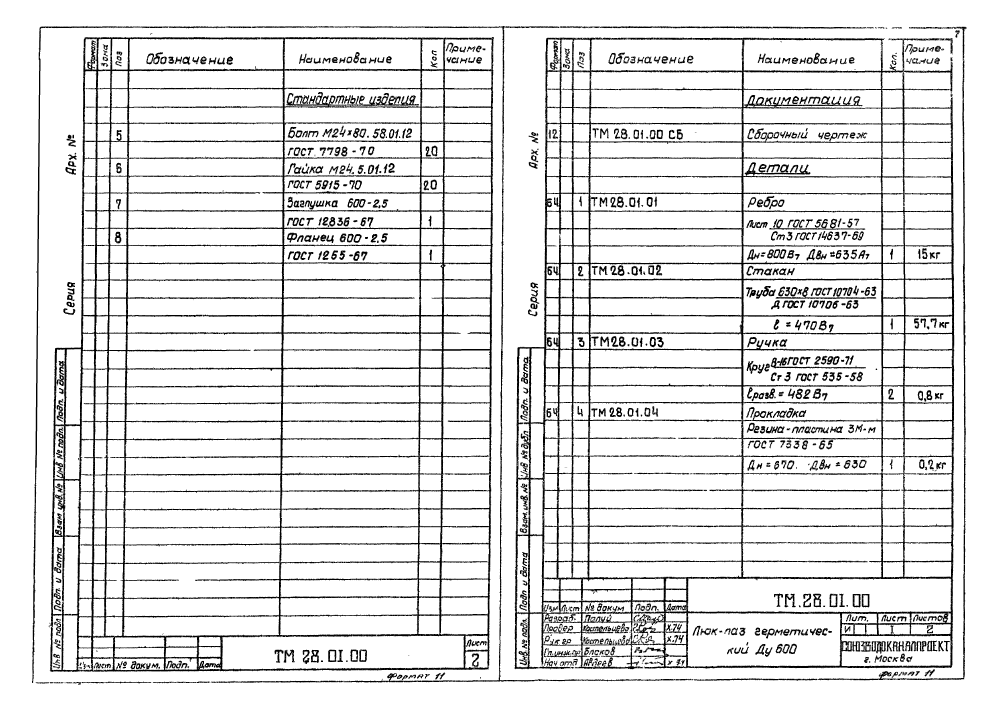 7
Формат Зона Поз Обозначение Наименование Кол Приме-чание
Стандартные изделия
5 Болт М24×80. 58.01.12
ГОСТ 7798 - 70 20
6 Гайка М24. 5.01.12
ГОСТ 5915 - 70 20
7 Заглушка 600 - 2,5
ГОСТ 12836 - 67 1
8 Фланец 600 - 2,5
ГОСТ 1255 - 67 1
Арх. №
Серия
Инв № подл Подп. и дата Взам инв. № Инв № подл. Подп. и дата
Лист № докум. Подп. Дата
ТМ 28.01.00
Лист
2
Формат 11
Формат Зона Поз Обозначение Наименование Кол. Приме-чание
Документация
12 ТМ 28.01.00 СБ Сборочный чертеж
Детали
64 1 ТМ28.01.01 Ребро
Лист 10 ГОСТ 5681-57
Ст3 ГОСТ 14637-69
Дн=800В7 Двн=635А7 1 15кг
64 2 ТМ28.01.02 Стакан
Труба 630×8 ГОСТ 10704-63
Д ГОСТ 10706-63
ℓ = 470В7 1 57,7кг
64 3 ТМ28.01.03 Ручка
Круг В-16 ГОСТ 2590-71
Ст 3 ГОСТ 535-58
ℓразв. = 482В7 2 0,8кг
64 4 ТМ28.01.04 Прокладка
Резина-пластина 3М-м
ГОСТ 7338-65
Дн = 670. Двн = 630 1 0,2кг
Арх. №
Серия
Инв № подл. Подп. и дата Взам. инв. № Инв № дубл Подп. и дата
ТМ.28.01.00
Изм Лист № докум Подп. Дата
Разраб. Папуй
Провер Костельцева Х.74
Рук гр Костельцева Х.74
Гл.инж.пр Власов
Нач отд Авдеев
Люк-лаз герметичес-
кий Ду 600
Лит. Лист Листов
И 1 2
СОЮЗВОДОКАНАЛПРОЕКТ
г. Москва
Формат 11